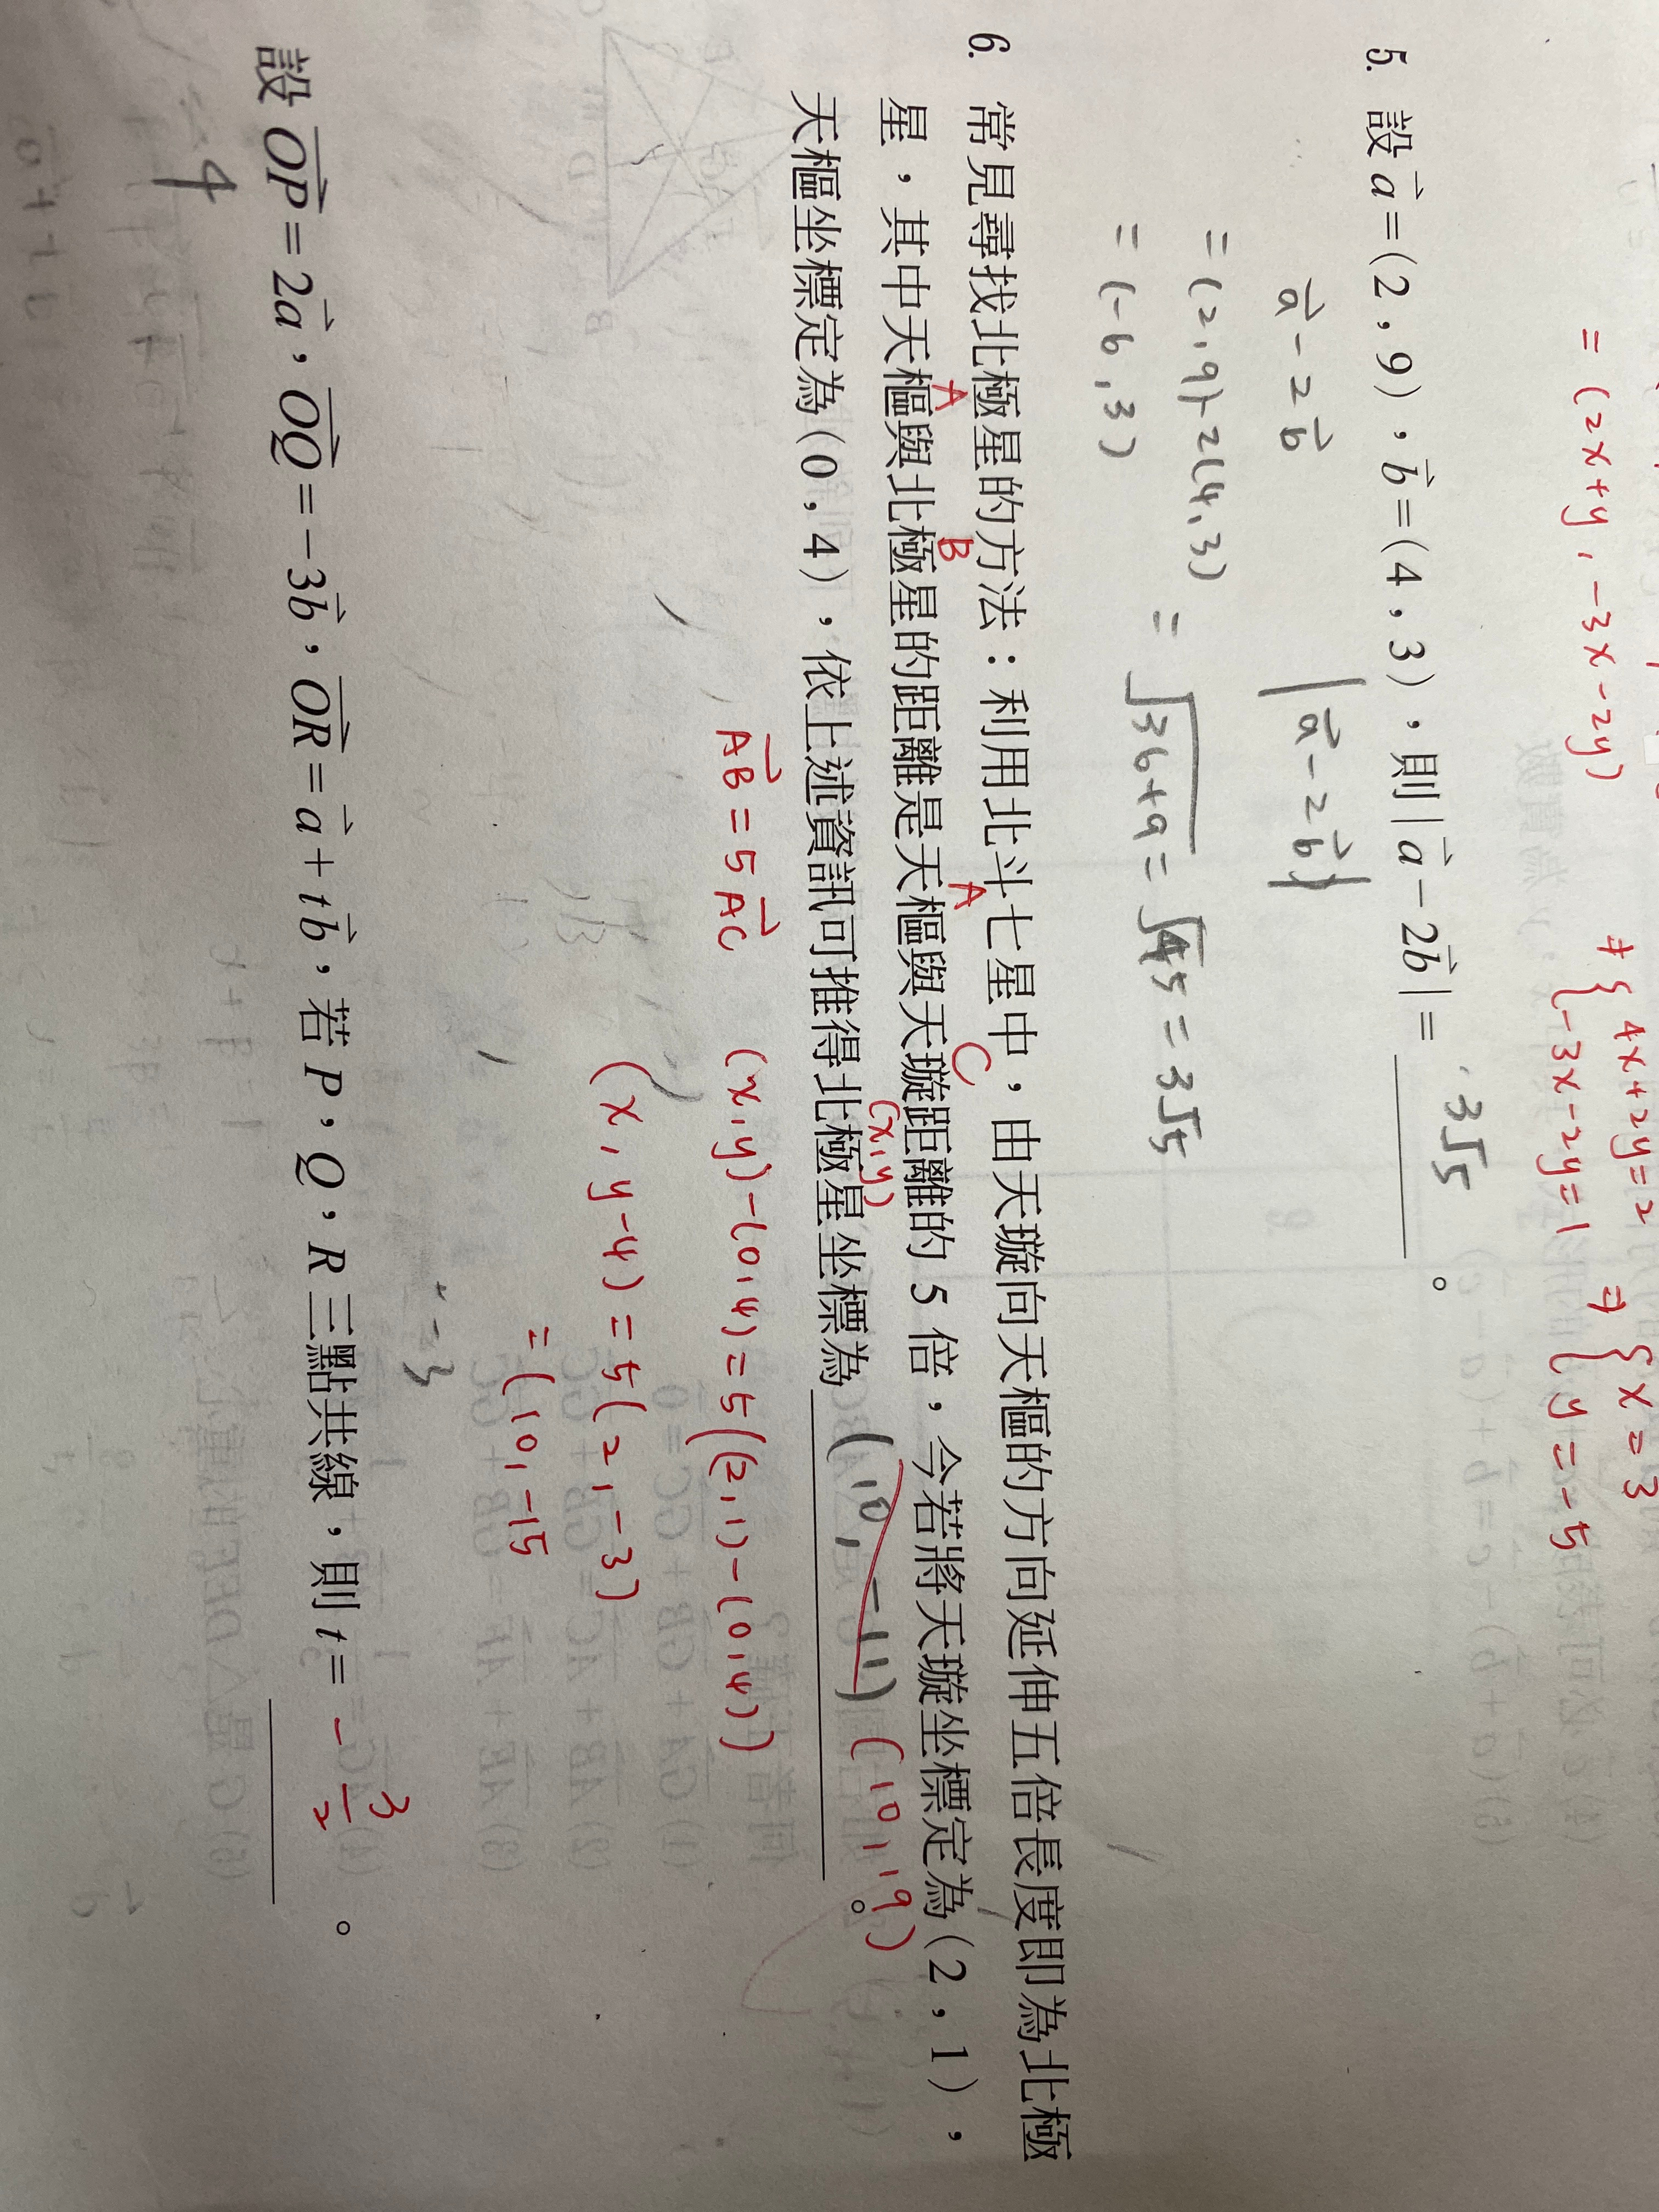 = (2x+y, -3x-2y)
⇒ { 4x+2y=2
-3x-2y=1
⇒ { x = 3
y = -5
5. 設 a⃗=(2,9),b⃗=(4,3),則|a⃗-2b⃗|= 3√5 。
a⃗-2b⃗
=(2,9)-2(4,3)
=(-6,3)
|a⃗-2b⃗|
=√36+9=√45=3√5
6. 常見尋找北極星的方法:利用北斗七星中,由天璇向天樞的方向延伸五倍長度即為北極
A B A C
星,其中天樞與北極星的距離是天樞與天璇距離的 5 倍,今若將天璇坐標定為(2,1),
(x,y)
天樞坐標定為(0,4),依上述資訊可推得北極星坐標為 (10,-11) (10,19) 。
AB⃗=5AC⃗
(x,y)-(0,4)=5((2,1)-(0,4))
(x,y-4)=5(2,-3)
=(10,-15
-3
設 OP⃗=2a⃗,OQ⃗=-3b⃗,OR⃗=a⃗+tb⃗,若 P,Q,R 三點共線,則 t= -3/2 。
4